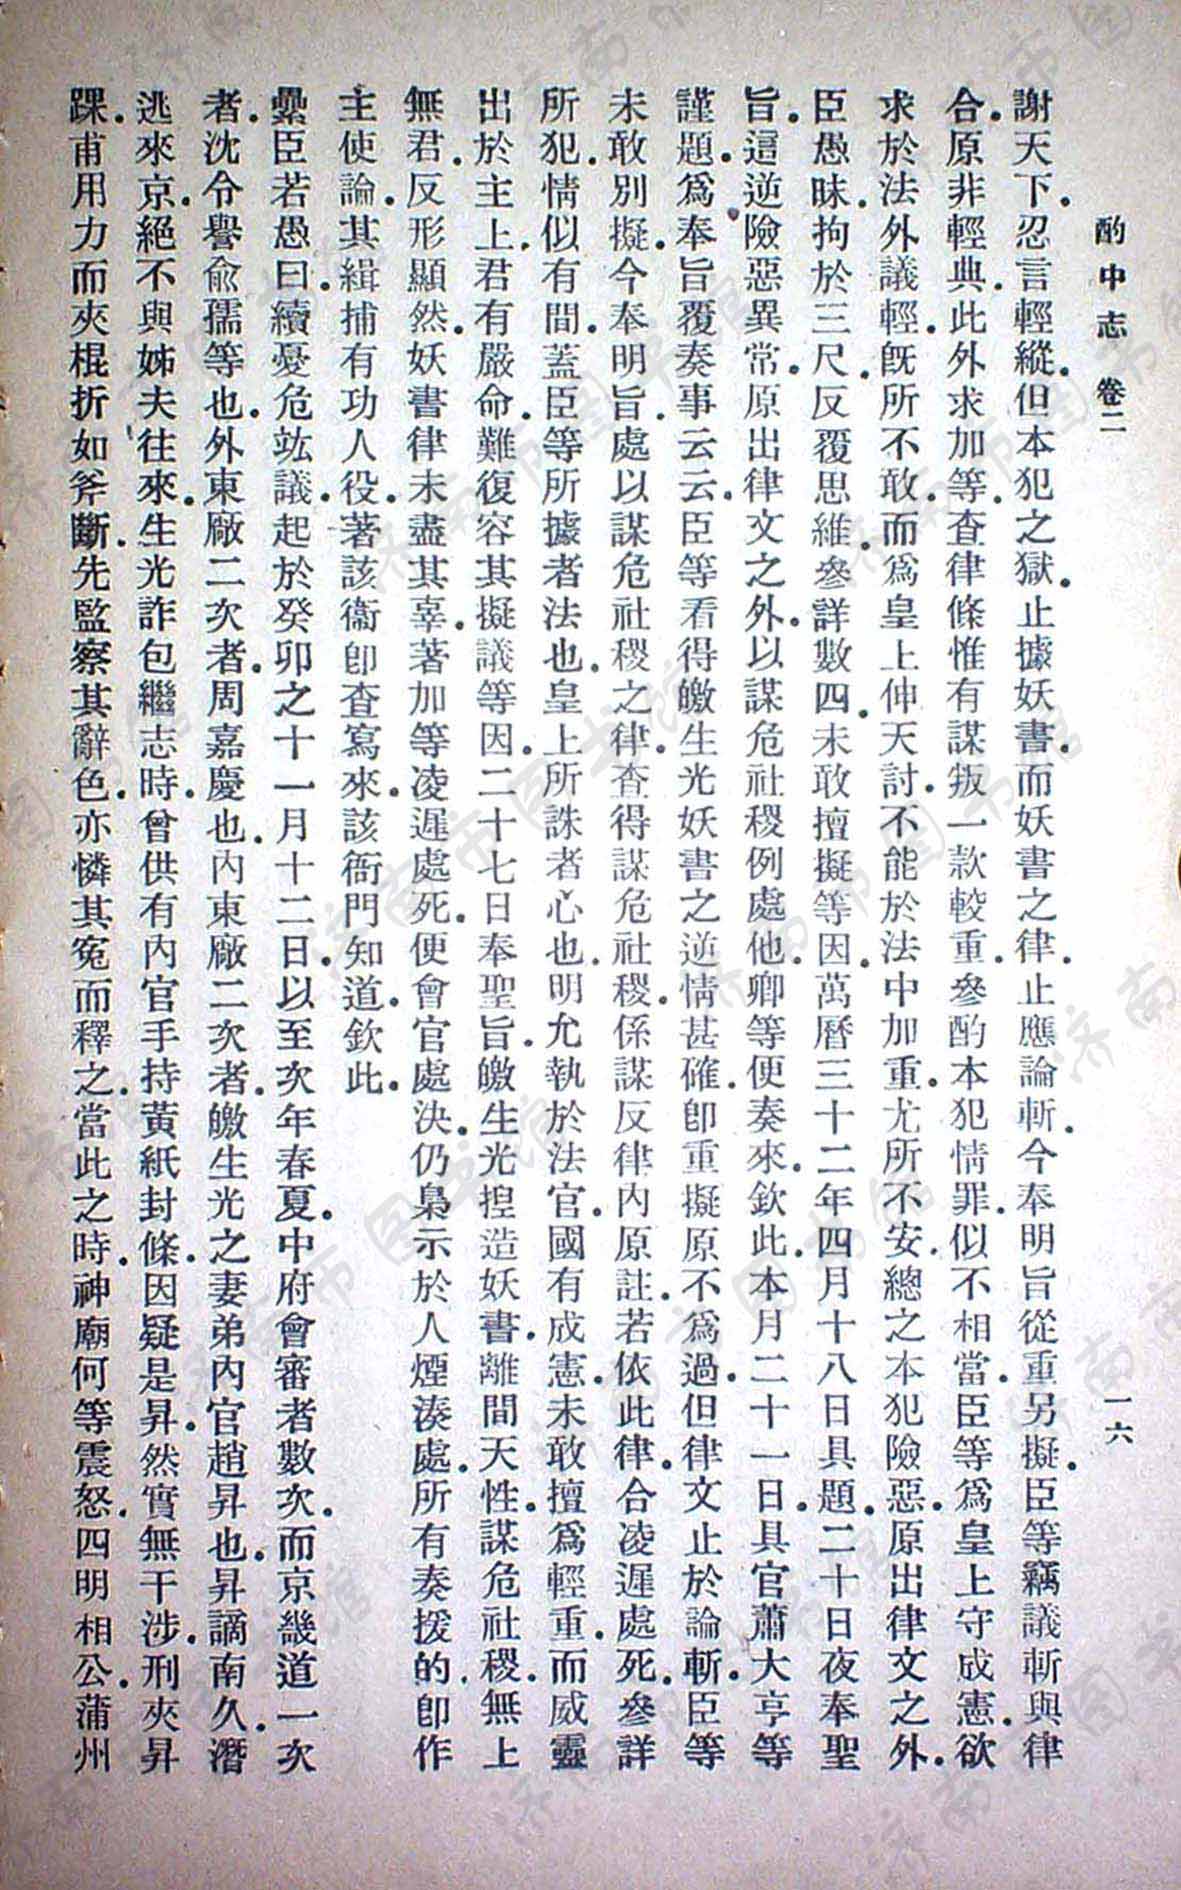 酌中志 卷二 一六
謝天下。忍言輕縱。但本犯之獄。止據妖書。而妖書之律。止應論斬。今奉明旨從重另擬。臣等竊議斬與律
合。原非輕典。此外求加等。查律條惟有謀叛一款較重。參酌本犯情罪。似不相當。臣等爲皇上守成憲。欲
求於法外議輕。旣所不敢。而爲皇上伸天討。不能於法中加重。尤所不安。總之本犯險惡。原出律文之外。
臣愚昧。拘於三尺。反覆思維。參詳數四。未敢擅擬等因。萬曆三十二年四月十八日具題。二十日夜奉聖
旨。這逆險惡異常。原出律文之外。以謀危社稷例處他。卿等便奏來。欽此。本月二十一日。具官蕭大亨等
謹題。爲奉旨覆奏事云云。臣等看得皦生光妖書之逆情甚確。卽重擬原不爲過。但律文止於論斬。臣等
未敢別擬。今奉明旨。處以謀危社稷之律。查得謀危社稷。係謀反律內原註。若依此律。合凌遲處死。參詳
所犯。情似有間。蓋臣等所據者法也。皇上所誅者心也。明允執於法官。國有成憲。未敢擅爲輕重。而威靈
出於主上。君有嚴命。難復容其擬議等因。二十七日奉聖旨。皦生光揑造妖書。離間天性。謀危社稷。無上
無君。反形顯然。妖書律未盡其辜。著加等凌遲處死。便會官處決。仍梟示於人煙湊處。所有奏援的。卽作
主使論。其緝捕有功人役。著該衞卽查寫來。該衙門知道。欽此。
纍臣若愚曰。續憂危竑議。起於癸卯之十一月十二日。以至次年春夏。中府會審者數次。而京畿道一次
者。沈令譽俞孺等也。外東廠二次者。周嘉慶也。內東廠二次者。皦生光之妻弟內官趙昇也。昇謫南久。潛
逃來京。絕不與姊夫往來。生光詐包繼志時。曾供有內官手持黃紙封條。因疑是昇。然實無干涉。刑夾昇
踝。甫用力而夾棍折如斧斷。先監察其辭色。亦憐其冤而釋之。當此之時。神廟何等震怒。四明相公。蒲州